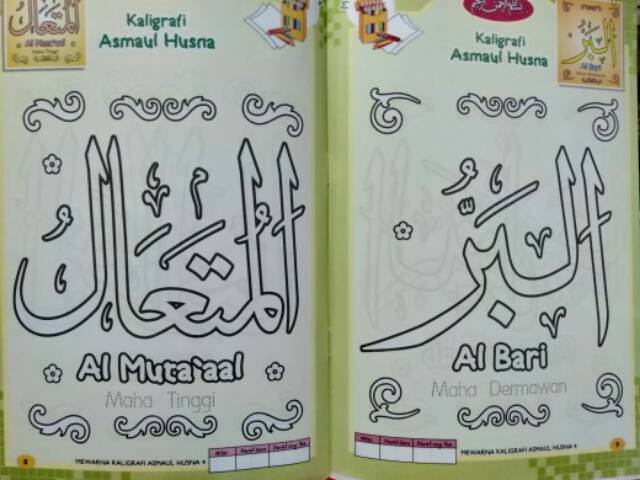 المتعال
Al Muta'aal
Maha Tinggi
Kaligrafi
Asmaul Husna
المتعال
Al Muta`aal
Maha Tinggi
Nilai Paraf Guru Paraf org. Tua
8
MEWARNA KALIGRAFI ASMAUL HUSNA 4
بسم الله الرحمن الرحيم
Kaligrafi
Asmaul Husna
البر
Al Bari
البَرُّ
Al Bari
Maha Dermawan
Nilai Paraf Guru Paraf org. Tua
MEWARNA KALIGRAFI ASMAUL HUSNA 4
9